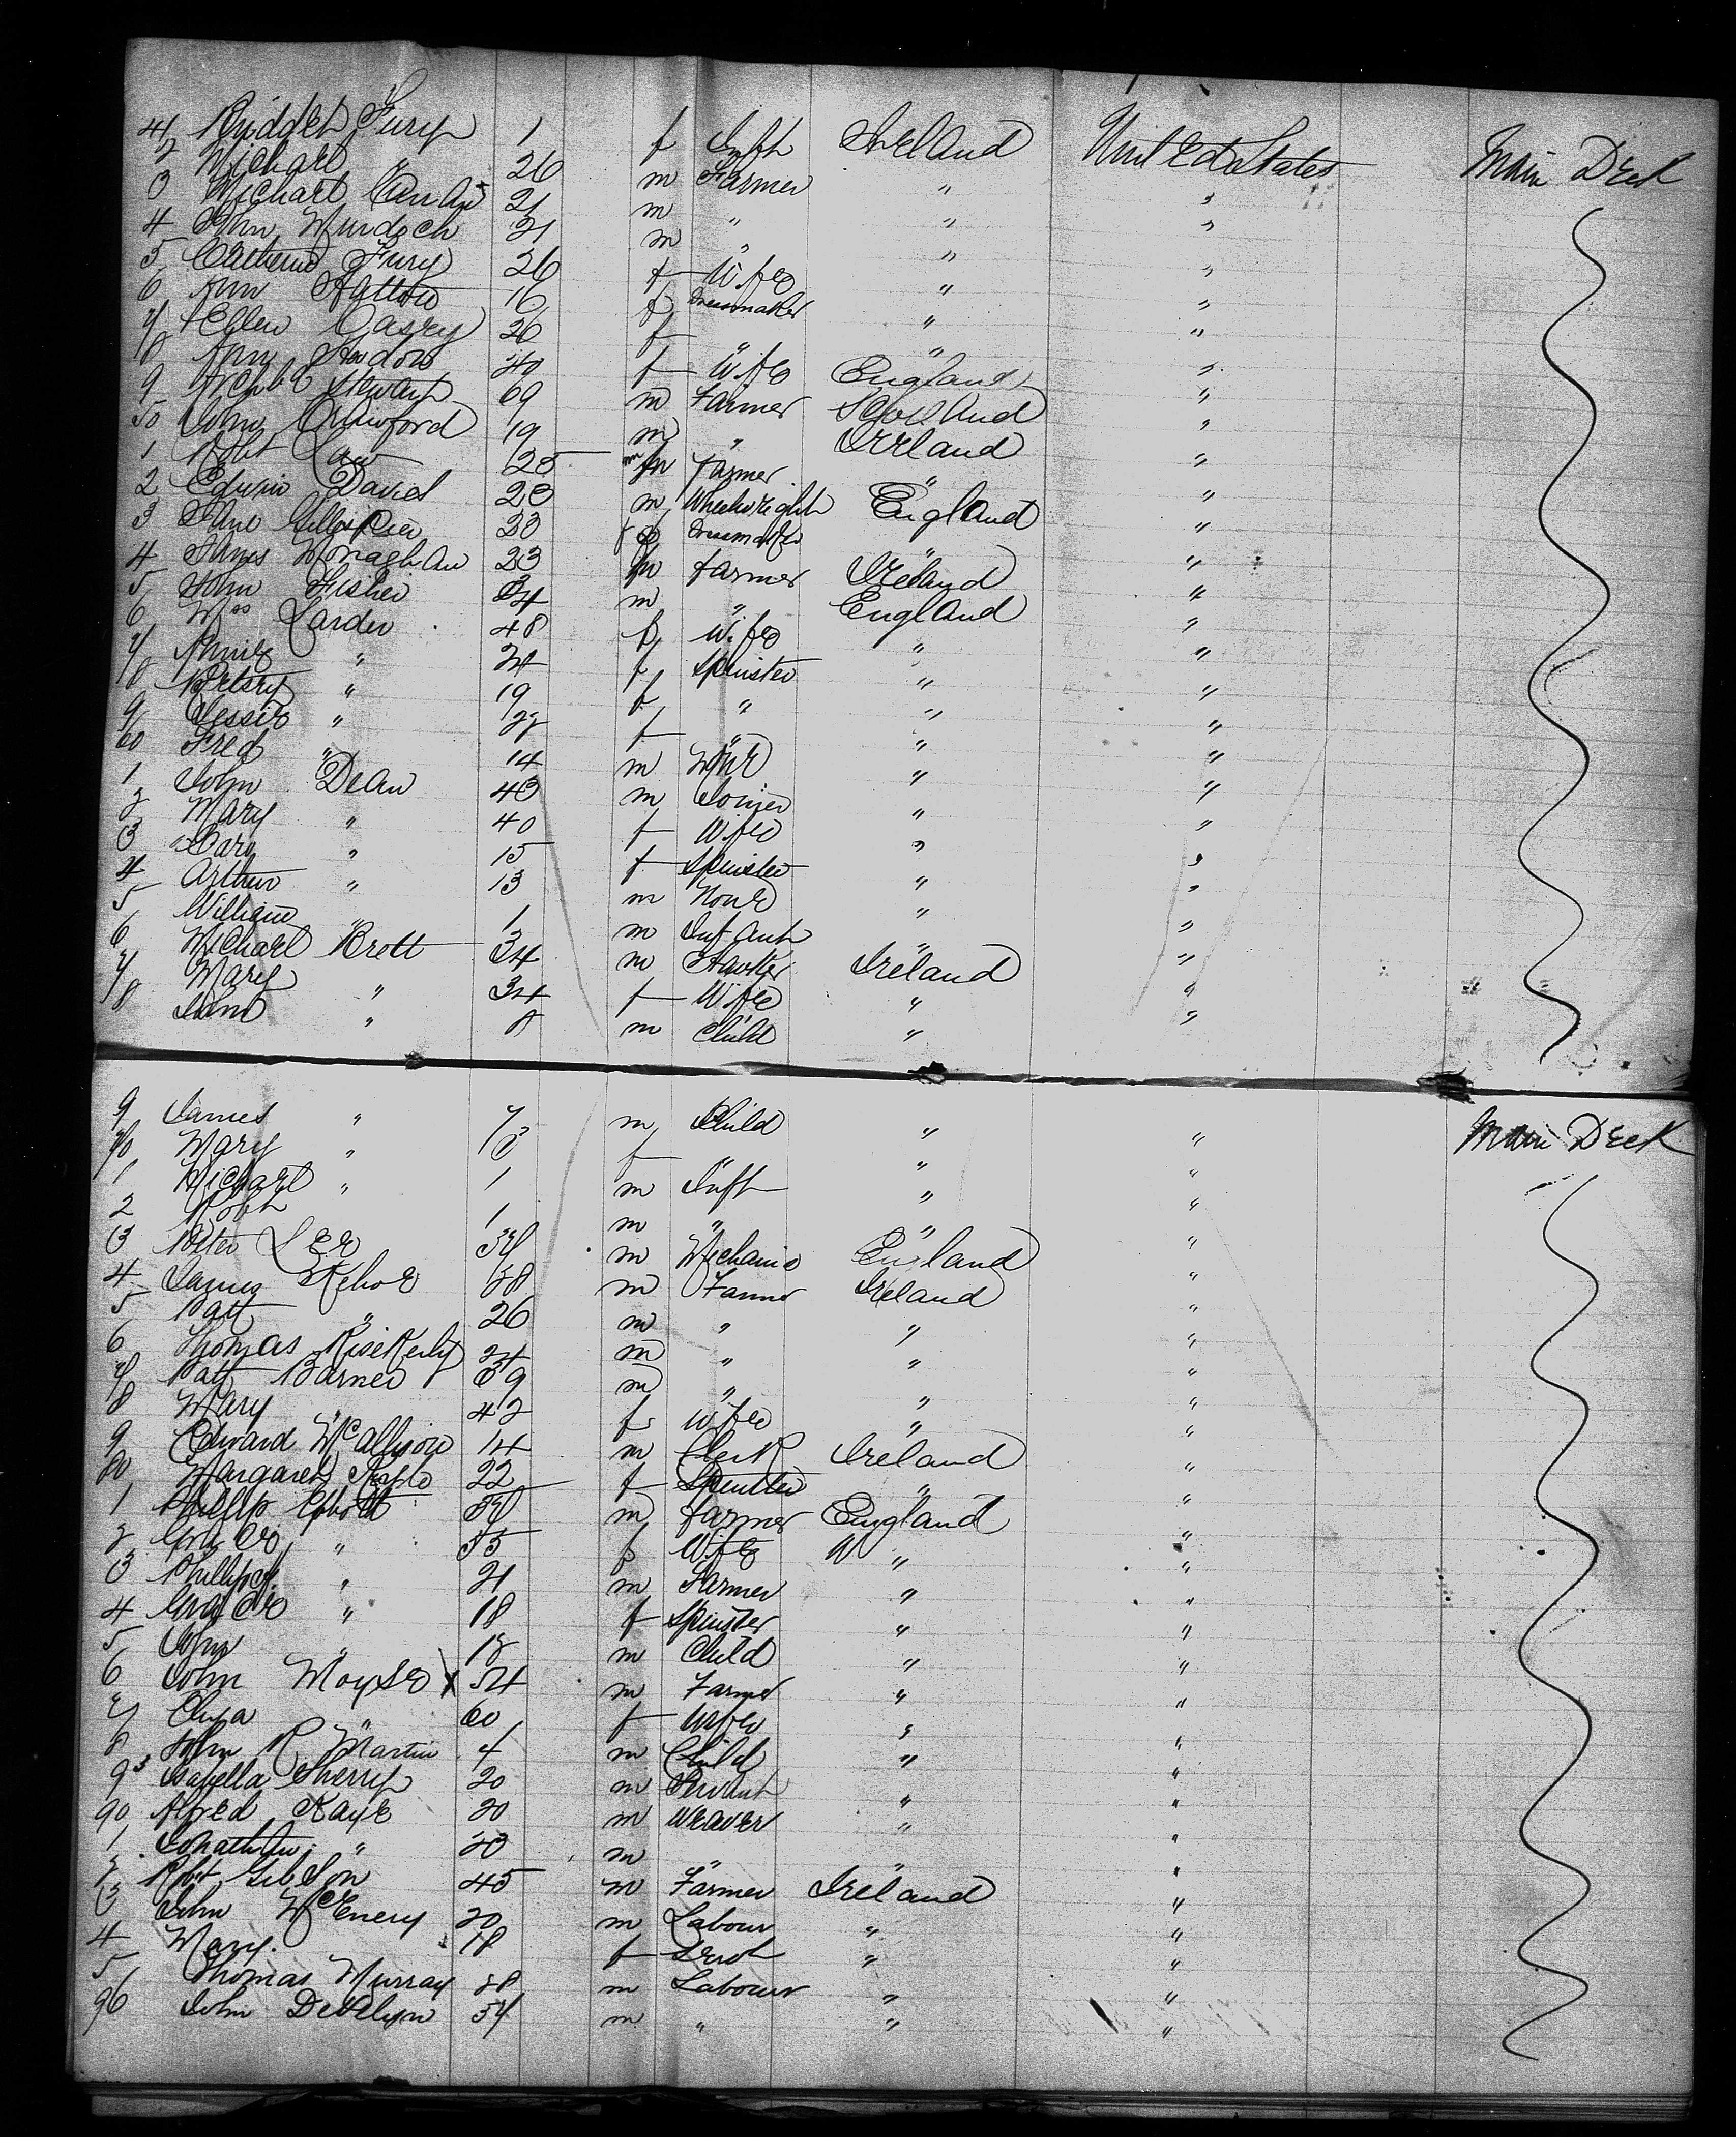 41 Bridget Fury 1 f Inft Ireland United States Main Deck
2 Michael " 26 m Farmer " "
3 Michael 21 m " " "
4 John Murdoch 21 m " " "
5 Catherine Fury 26 f Wife " "
6 Ann 16 f Dressmaker " "
7 Ellen Casey 26 f " " "
8 Ann 40 f Wife England "
9 Archbd Stewart 69 m Farmer Scotland "
50 John Crawford 19 m " Ireland "
1 Robt Law 25 m Farmer " "
2 Edwin Davies 28 m Wheelwright England "
3 Jane Gillespie 30 f Dressmaker " "
4 James Monaghan 23 m Farmer Ireland "
5 John Fisher 34 m " England "
6 Mrs Larder 48 f Wife " "
7 Annie " 24 f Spinster " "
8 Betsey " 19 f " " "
9 Jessie " 22 f " " "
60 Fred " 14 m None " "
1 John Dean 43 m Joiner " "
2 Mary " 40 f Wife " "
3 Sary " 15 f Spinster " "
4 Arthur " 13 m None " "
5 William " 1 m Infant " "
6 Michael Brett 34 m Hawker Ireland "
7 Mary " 34 f Wife " "
8 " 8 m Child " "
9 James " 7 m Child " " Main Deck
70 Mary " 3 f " " "
1 Michael " 1 m Inft " "
2 Robt 1 m " " "
3 Peter Lee 37 m Mechanic England "
4 James Kehoe 38 m Farmer Ireland "
5 Patt " 26 m " " "
6 Thomas 24 m " " "
7 Patt Barnes 39 m " " "
8 Mary " 42 f Wife " "
9 Edward McAllison 14 m Clerk Ireland "
80 Margaret 22 f Spinster " "
1 Phillip 57 m Farmer England "
2 Grace " 55 f Wife " "
3 Phillip " 21 m Farmer " "
4 Grace " 18 f Spinster " "
5 John " 12 m Child " "
6 John Moyse X 54 m Farmer " "
7 Eliza " 60 f Wife " "
8 John R Martin 4 m Child " "
9 Isabella Sherry 20 m Servant " "
90 Alfred Kaye 20 m Weaver " "
1 Jonathan " 20 m " " "
2 Robt Gibson 45 m Farmer Ireland "
3 John McEnery 20 m Labour " "
4 Mary. " 18 f Servt " "
5 Thomas Murray 28 m Labour " "
96 John Develyn 57 m " " "